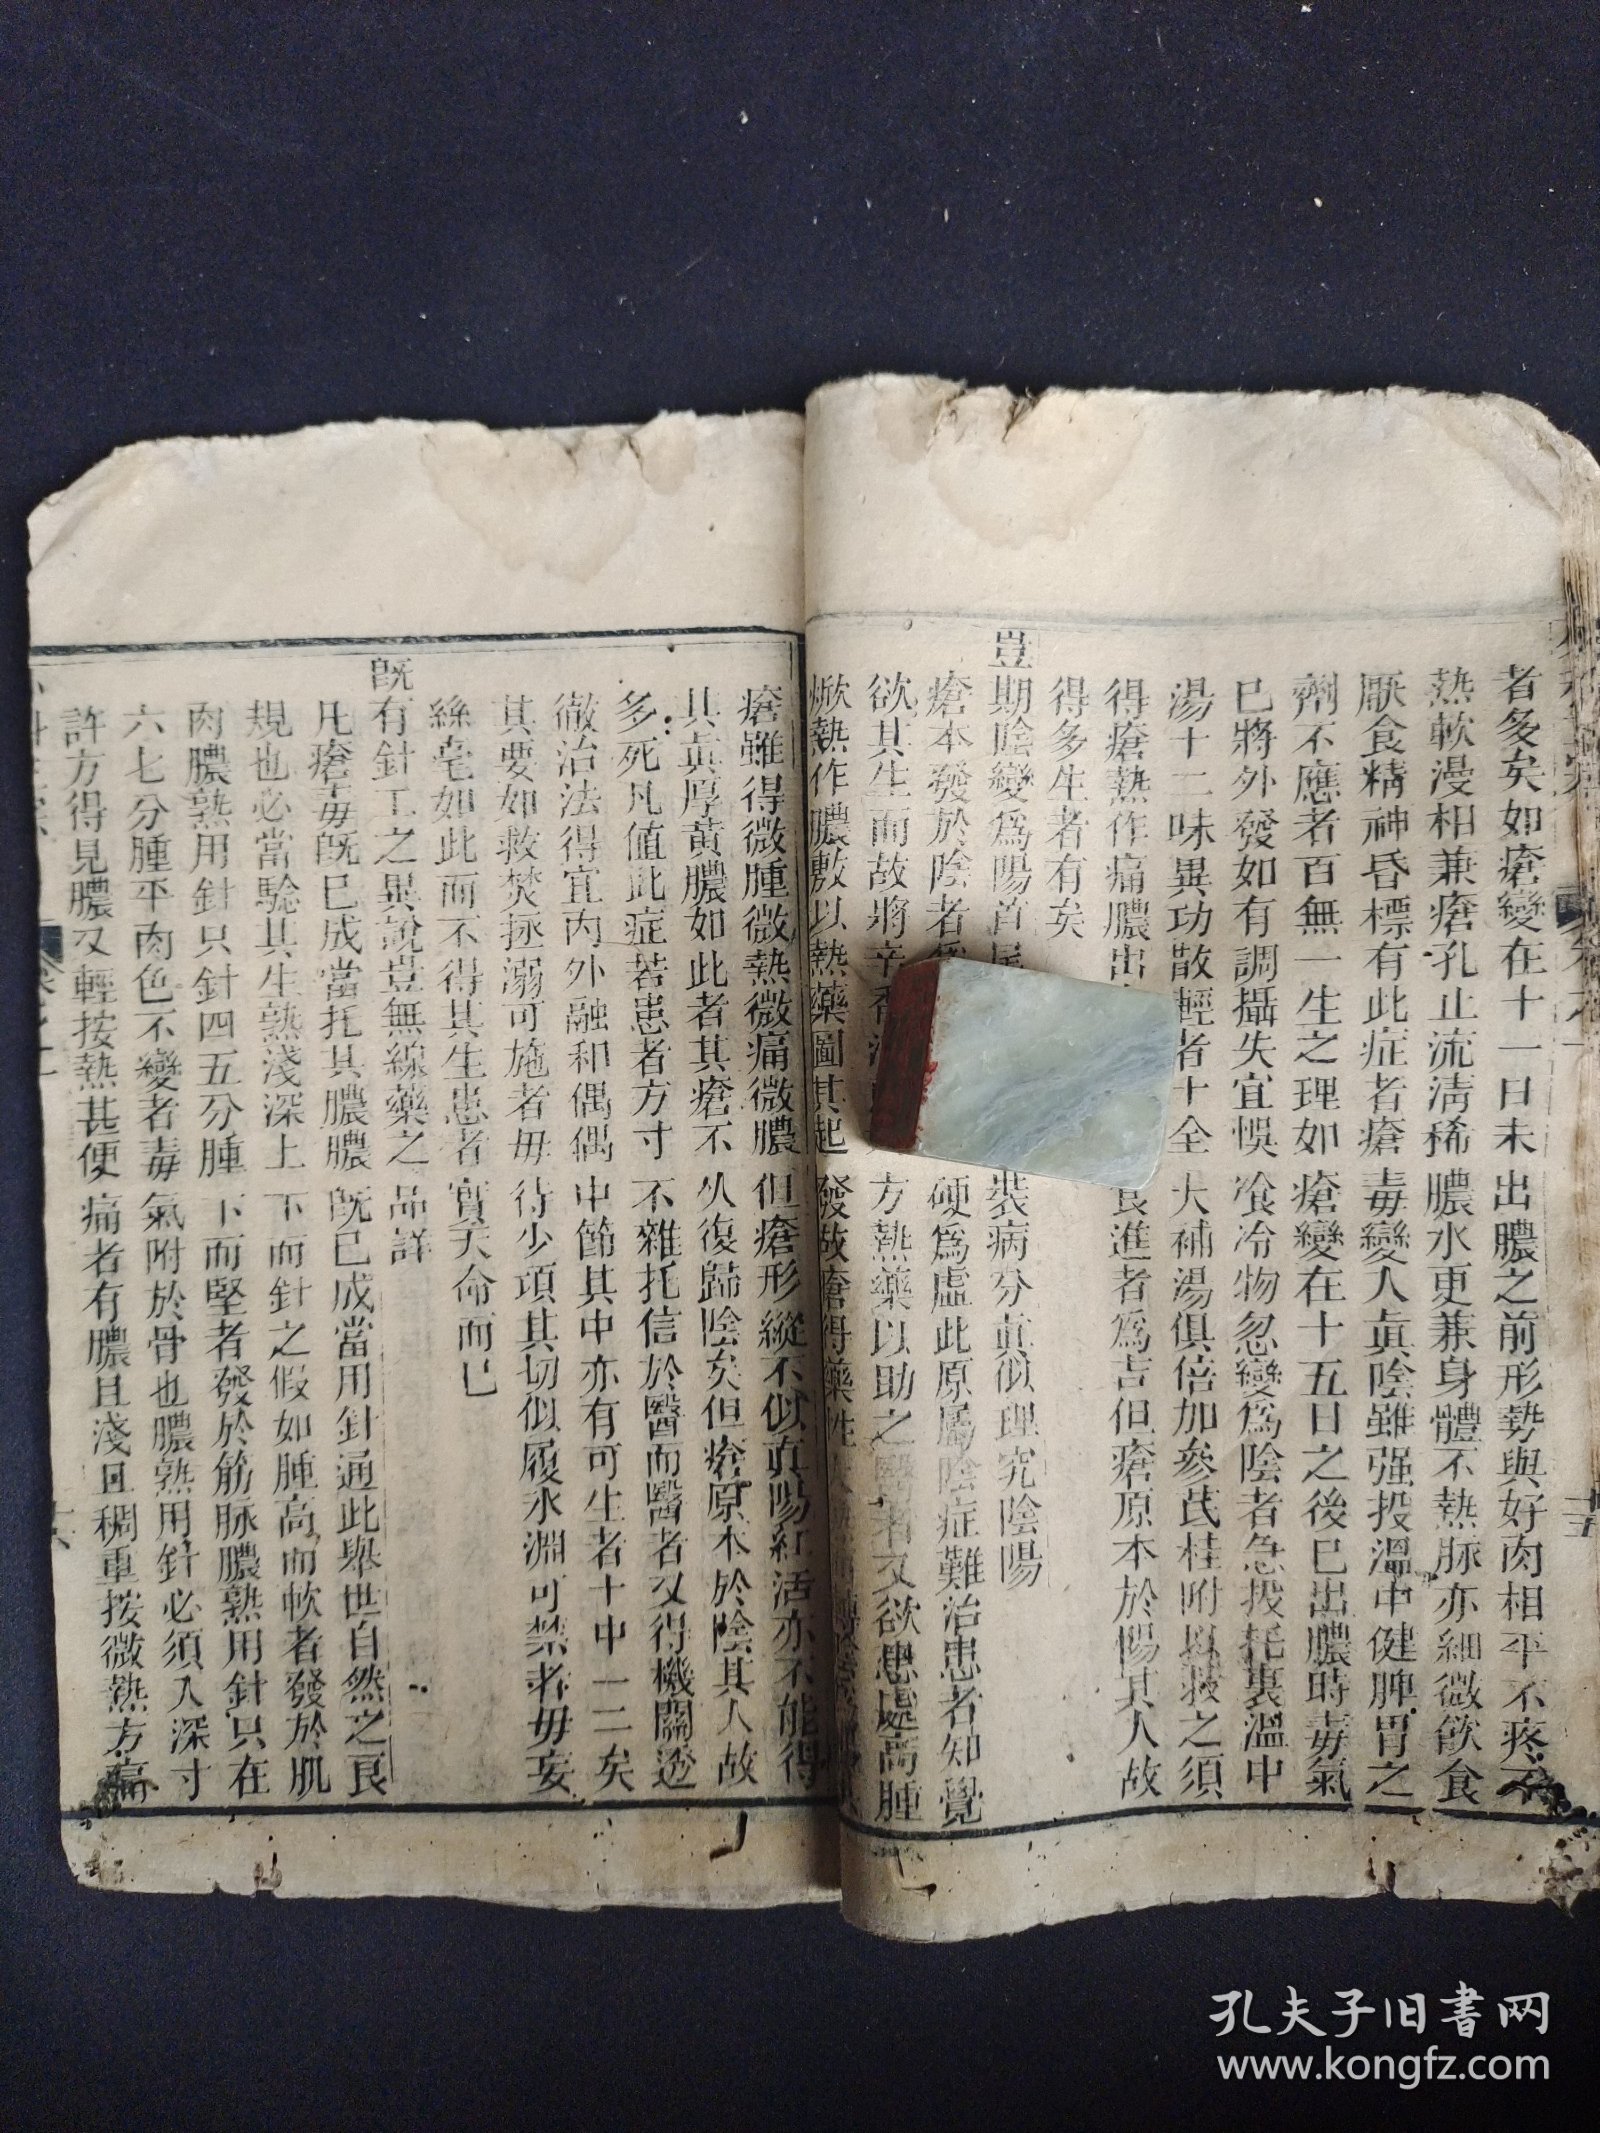 者多矣如瘡變在十一日未出膿之前形勢與好肉相平不疼不
熱軟漫相兼瘡孔止流清稀膿水更兼身體不熱脈亦細微飲食
厭食精神昏標有此症者瘡毒變人眞陰雖强投溫中健脾胃之
劑不應者百無一生之理如瘡變在十五日之後已出膿時毒氣
已將外發如有調攝失宜悞飡冷物忽變爲陰者急投托裏溫中
湯十二味異功散輕者十全大補湯俱倍加參芪桂附以救之須
得瘡熱作痛膿出 食進者爲吉但瘡原本於陽其人故
得多生者有矣
豈期陰變爲陽首尾 裝病分眞似理究陰陽
瘡本發於陰者 硬爲虛此原屬陰症難治患者知覺
欲其生而故將辛香 方熱藥以助之醫者又欲患處高腫
焮熱作膿敷以熱藥圖其起發故瘡得藥性
瘡雖得微腫微熱微痛微膿但瘡形縱不似眞陽紅活亦不能得
其眞厚黃膿如此者其瘡不久復歸陰矣但瘡原本於陰其人故
多死凡値此症若患者方寸不雜托信於醫而醫者又得機關透
徹治法得宜內外融和偶偶中節其中亦有可生者十中一二矣
其要如救焚拯溺可施者毋待少項其切似履氷淵可禁者毋妄
絲毫如此而不得其生患者實天命而已
旣有針工之異說豈無線藥之品詳
凡瘡毒旣已成當托其膿膿旣已成當用針通此舉世自然之良
規也必當騐其生熟淺深上下而針之假如腫高而軟者發於肌
肉膿熟用針只針四五分腫下而堅者發於筋脉膿熟用針只在
六七分腫平肉色不變者毒氣附於骨也膿熟用針必須入深寸
許方得見膿又輕按熱甚便痛者有膿且淺且稠重按微熱方痛
孔夫子旧书网
www.kongfz.com